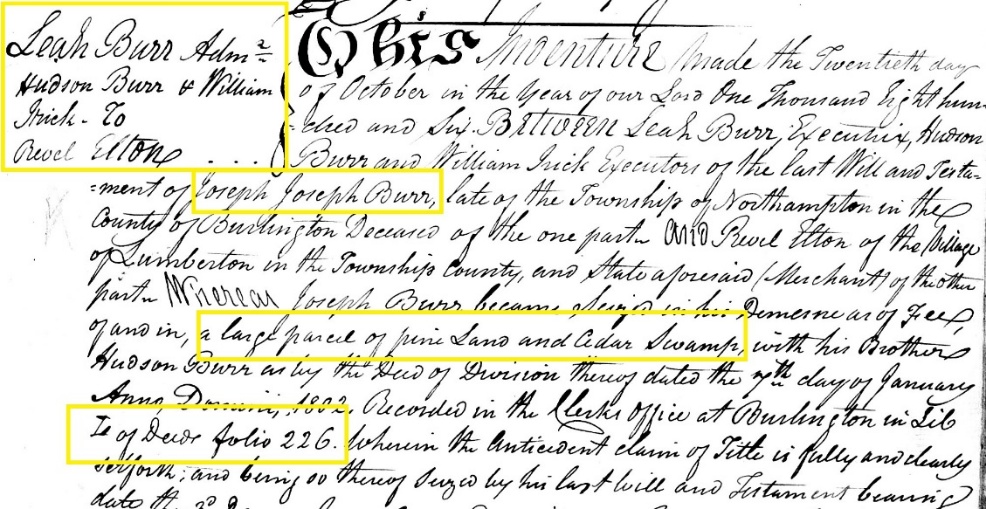 Leah Burr Adm.r
Hudson Burr & William
Irick - To
Revel Elton . . . .
This Indenture Made the Twentieth day
of October in the Year of our Lord One Thousand Eight hun
=dred and Six. Between Leah Burr, Executrix, Hudson
Burr and William Irick Executors of the last Will and Testa=
=ment of Joseph Joseph Burr, late of the Township of Northampton in the
County of Burlington Deceased of the one part And Revel Elton of the Village
of Lumberton in the Township County, and State aforesaid (Merchant) of the other
part Whereas Joseph Burr became Seized in his Demesne as of Fee,
of and in, a large parcel of pine Land and Cedar Swamp, with his Brother
Hudson Burr as by the Deed of Division thereof dated the 7th day of January
Anno, Domini, 1802. Recorded in the Clerks Office at Burlington in Lib
of Deeds folio 226. wherein the Antecedent claim of Title is fully and clearly
setforth; and being so thereof Seized by his last Will and Testament bearing
date the 3d